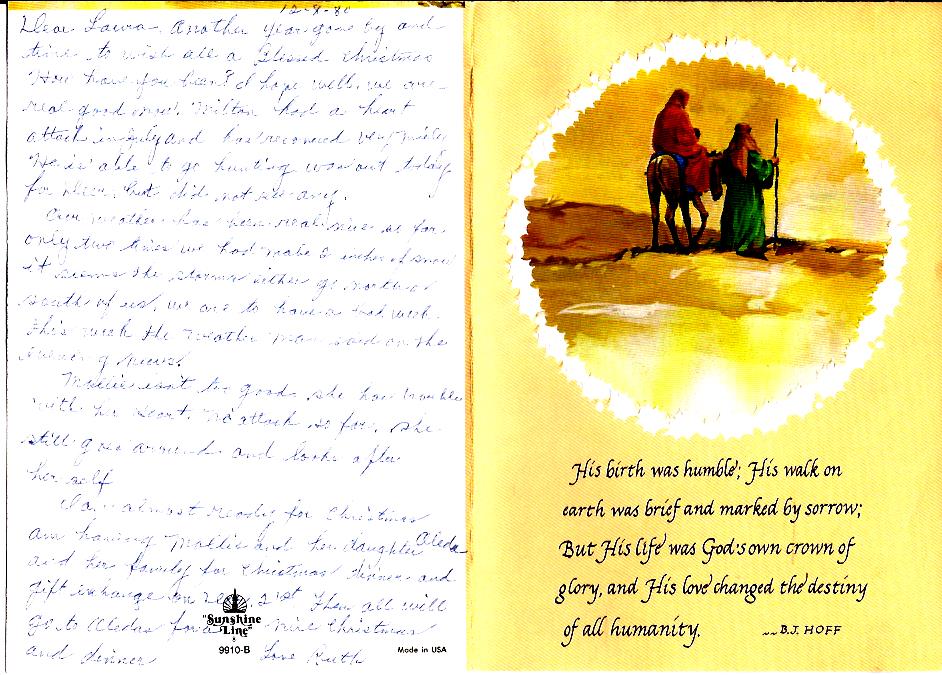 12-8-80
Dear Laura, Another year gone by and
time to wish all a Blessed Christmas
How have you been? I hope well. we are
real good now. Milton had a heart
attack in July and has recovered very nicely
He is able to go hunting was out today
for deer, but did not see any.
Our weather has been real nice so far
only two times we had maybe 2 inches of snow
it seems the storms either go north or
south of us, we are to have a bad week.
this week the weather man said on the
evening news.
Mollie isn't too good, she has trouble
with her heart. no attack so far. she
still goes around and looks after
her self
I am almost ready for Christmas
am having Mollie and her daughter Aleda
and her family for Christmas dinner and
gift exchange on 21st. Then all will
go to Aledas for a nice Christmas
and dinner Love Ruth
"Sunshine
Line"
9910-B
Made in USA
His birth was humble; His walk on
earth was brief and marked by sorrow;
But His life was God's own crown of
glory, and His love changed the destiny
of all humanity.
~~B.J. HOFF